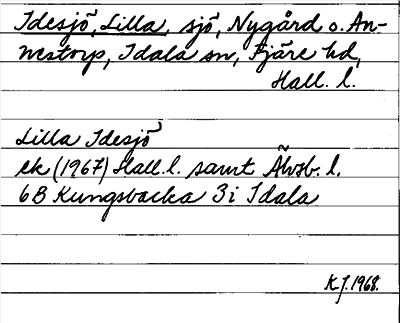 Idesjö, Lilla, sjö, Nygård o. An-
nestorp, Idala sn, Fjäre hd,
Hall. l.
Lilla Idesjö
ek (1967) Hall. l. samt Älvsb. l.
6B Kungsbacka 3i Idala
K.J. 1968.